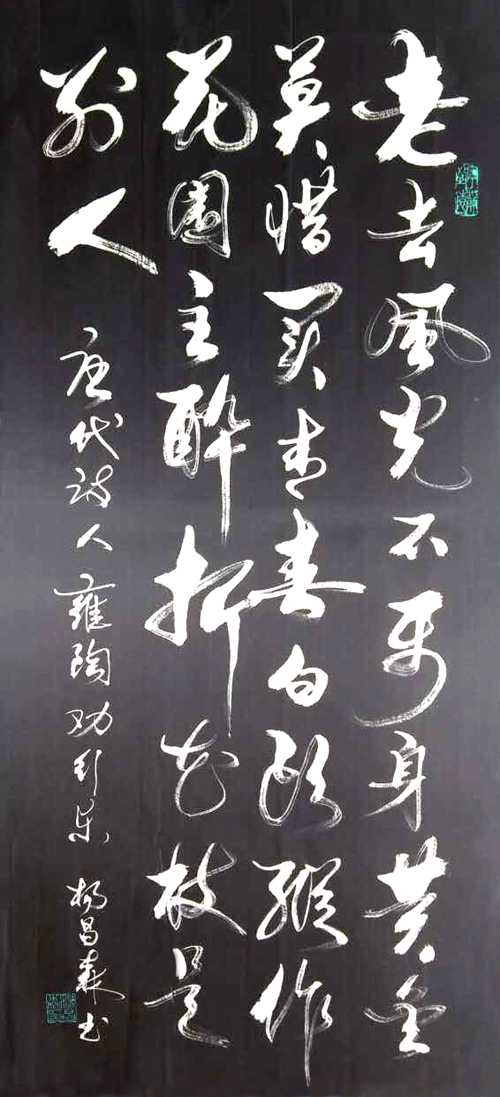 老去風光不属身黄金
莫惜買青春白頭縱作
花園主酔折花枝是
别人
唐代詩人雍陶劝行樂 楊昌森书